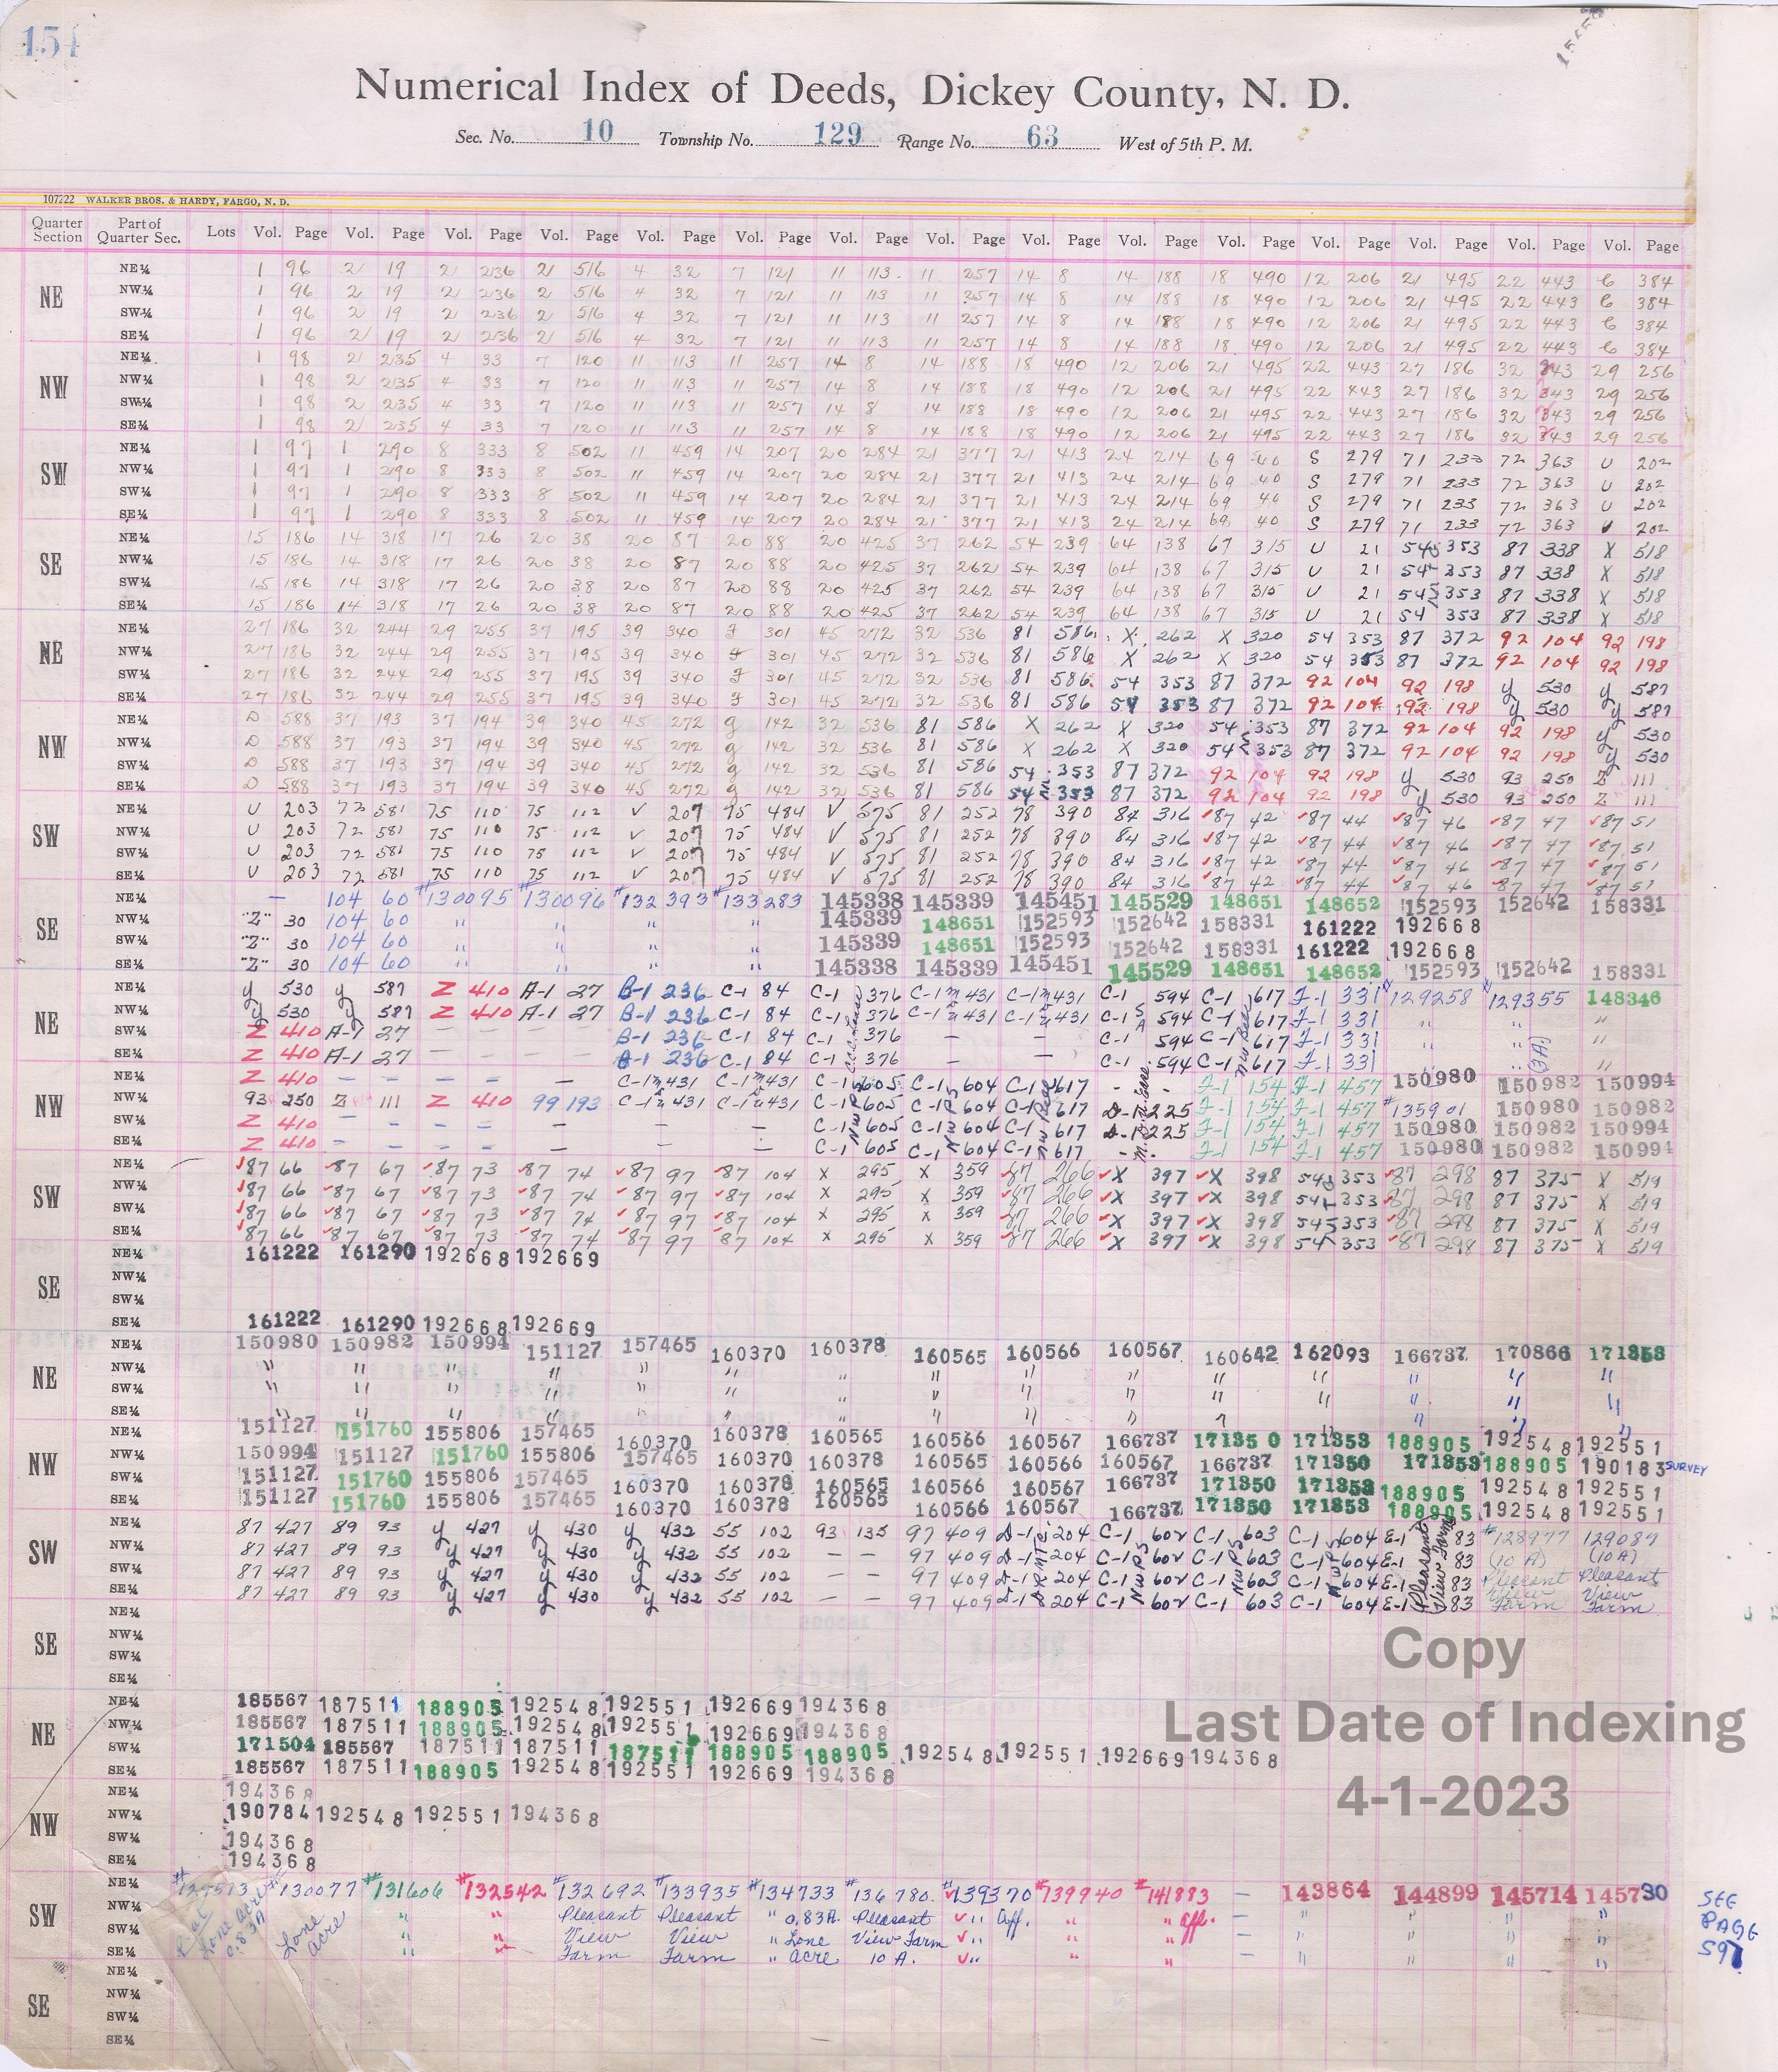 154
15459
Numerical Index of Deeds, Dickey County, N. D.
Sec. No. 10 Township No. 129 Range No. 63 West of 5th P. M.
107222 WALKER BROS. & HARDY, FARGO, N. D.
Quarter Section Part of Quarter Sec. Lots Vol. Page Vol. Page Vol. Page Vol. Page Vol. Page Vol. Page Vol. Page Vol. Page Vol. Page Vol. Page Vol. Page Vol. Page Vol. Page Vol. Page Vol. Page
NE
NE¼ 1 96 2 19 2 236 2 516 4 32 7 121 11 113 11 257 14 8 14 188 18 490 12 206 21 495 22 443 C 384
NW¼ 1 96 2 19 2 236 2 516 4 32 7 121 11 113 11 257 14 8 14 188 18 490 12 206 21 495 22 443 C 384
SW¼ 1 96 2 19 2 236 2 516 4 32 7 121 11 113 11 257 14 8 14 188 18 490 12 206 21 495 22 443 C 384
SE¼ 1 96 2 19 2 236 2 516 4 32 7 121 11 113 11 257 14 8 14 188 18 490 12 206 21 495 22 443 C 384
NW
NE¼ 1 98 2 235 4 33 7 120 11 113 11 257 14 8 14 188 18 490 12 206 21 495 22 443 27 186 32 343 29 256
NW¼ 1 98 2 235 4 33 7 120 11 113 11 257 14 8 14 188 18 490 12 206 21 495 22 443 27 186 32 343 29 256
SW¼ 1 98 2 235 4 33 7 120 11 113 11 257 14 8 14 188 18 490 12 206 21 495 22 443 27 186 32 343 29 256
SE¼ 1 98 2 235 4 33 7 120 11 113 11 257 14 8 14 188 18 490 12 206 21 495 22 443 27 186 32 343 29 256
SW
NE¼ 1 97 1 290 8 333 8 502 11 459 14 207 20 284 21 377 21 413 24 214 69 40 S 279 71 233 72 363 U 202
NW¼ 1 97 1 290 8 333 8 502 11 459 14 207 20 284 21 377 21 413 24 214 69 40 S 279 71 233 72 363 U 202
SW¼ 1 97 1 290 8 333 8 502 11 459 14 207 20 284 21 377 21 413 24 214 69 40 S 279 71 233 72 363 U 202
SE¼ 1 97 1 290 8 333 8 502 11 459 14 207 20 284 21 377 21 413 24 214 69 40 S 279 71 233 72 363 U 202
SE
NE¼ 15 186 14 318 17 26 20 38 20 87 20 88 20 425 37 262 54 239 64 138 67 315 U 21 54 353 87 338 X 518
NW¼ 15 186 14 318 17 26 20 38 20 87 20 88 20 425 37 262 54 239 64 138 67 315 U 21 54 353 87 338 X 518
SW¼ 15 186 14 318 17 26 20 38 20 87 20 88 20 425 37 262 54 239 64 138 67 315 U 21 54 353 87 338 X 518
SE¼ 15 186 14 318 17 26 20 38 20 87 20 88 20 425 37 262 54 239 64 138 67 315 U 21 54 353 87 338 X 518
NE
NE¼ 27 186 32 244 29 255 37 195 39 340 F 301 45 272 32 536 81 586 X 262 X 320 54 353 87 372 92 104 92 198
NW¼ 27 186 32 244 29 255 37 195 39 340 F 301 45 272 32 536 81 586 X 262 X 320 54 353 87 372 92 104 92 198
SW¼ 27 186 32 244 29 255 37 195 39 340 F 301 45 272 32 536 81 586 54 353 87 372 92 104 92 198 y 530 y 587
SE¼ 27 186 32 244 29 255 37 195 39 340 F 301 45 272 32 536 81 586 54 353 87 372 92 104 92 198 y 530 y 587
NW
NE¼ D 588 37 193 37 194 39 340 45 272 g 142 32 536 81 586 X 262 X 320 54 353 87 372 92 104 92 198 y 530
NW¼ D 588 37 193 37 194 39 340 45 272 g 142 32 536 81 586 X 262 X 320 54 353 87 372 92 104 92 198 y 530
SW¼ D 588 37 193 37 194 39 340 45 272 g 142 32 536 81 586 54 353 87 372 92 104 92 198 y 530 93 250 Z 111
SE¼ D 588 37 193 37 194 39 340 45 272 g 142 32 536 81 586 54 353 87 372 92 104 92 198 y 530 93 250 Z 111
SW
NE¼ U 203 72 581 75 110 75 112 V 207 75 484 V 575 81 252 78 390 84 316 ✓87 42 ✓87 44 ✓87 46 ✓87 47 ✓87 51
NW¼ U 203 72 581 75 110 75 112 V 207 75 484 V 575 81 252 78 390 84 316 ✓87 42 ✓87 44 ✓87 46 ✓87 47 ✓87 51
SW¼ U 203 72 581 75 110 75 112 V 207 75 484 V 575 81 252 78 390 84 316 ✓87 42 ✓87 44 ✓87 46 ✓87 47 ✓87 51
SE¼ U 203 72 581 75 110 75 112 V 207 75 484 V 575 81 252 78 390 84 316 ✓87 42 ✓87 44 ✓87 46 ✓87 47 ✓87 51
SE
NE¼ — 104 60 #130095 #130096 #132393 #133283 145338 145339 145451 145529 148651 148652 152593 152642 158331
NW¼ "Z" 30 104 60 " " " " 145339 148651 152593 152642 158331 161222 192668
SW¼ "Z" 30 104 60 " " " " 145339 148651 152593 152642 158331 161222 192668
SE¼ "Z" 30 104 60 " " " " 145338 145339 145451 145529 148651 148652 152593 152642 158331
NE
NE¼ y 530 y 587 Z 410 A-1 27 B-1 236 C-1 84 C-1 376 C-1 431 C-1 431 C-1 594 C-1 617 F-1 331 #129258 #129355 148346
NW¼ y 530 y 587 Z 410 A-1 27 B-1 236 C-1 84 C-1 376 C-1 431 C-1 431 C-1 594 C-1 617 F-1 331 " " "
SW¼ Z 410 A-1 27 — — B-1 236 C-1 84 C-1 376 — — C-1 594 C-1 617 F-1 331 " "
SE¼ Z 410 A-1 27 — — B-1 236 C-1 84 C-1 376 — — C-1 594 C-1 617 F-1 331 " (3A) "
NW
NE¼ Z 410 — — — — C-1 431 C-1 431 C-1 605 C-1 604 C-1 617 - - F-1 154 F-1 457 150980 150982 150994
NW¼ 93 250 Z 111 Z 410 99 193 C-1 431 C-1 431 C-1 605 C-1 604 C-1 617 D-1 225 F-1 154 F-1 457 #135901 150980 150982
SW¼ Z 410 — — — — — C-1 605 C-1 604 C-1 617 D-1 225 F-1 154 F-1 457 150980 150982 150994
SE¼ Z 410 — — — — — C-1 605 C-1 604 C-1 617 - F-1 154 F-1 457 150980 150982 150994
SW
NE¼ ✓87 66 ✓87 67 ✓87 73 ✓87 74 ✓87 97 ✓87 104 X 295 X 359 ✓87 266 ✓X 397 ✓X 398 54 353 ✓87 298 87 375 X 519
NW¼ ✓87 66 ✓87 67 ✓87 73 ✓87 74 ✓87 97 ✓87 104 X 295 X 359 ✓87 266 ✓X 397 ✓X 398 54 353 ✓87 298 87 375 X 519
SW¼ ✓87 66 ✓87 67 ✓87 73 ✓87 74 ✓87 97 ✓87 104 X 295 X 359 ✓87 266 ✓X 397 ✓X 398 54 353 ✓87 298 87 375 X 519
SE¼ ✓87 66 ✓87 67 ✓87 73 ✓87 74 ✓87 97 ✓87 104 X 295 X 359 ✓87 266 ✓X 397 ✓X 398 54 353 ✓87 298 87 375 X 519
SE
NE¼ 161222 161290 192668 192669
NW¼
SW¼
SE¼ 161222 161290 192668 192669
NE
NE¼ 150980 150982 150994 151127 157465 160370 160378 160565 160566 160567 160642 162093 166737 170866 171353
NW¼ " " " " " " " " " " " " " " "
SW¼ " " " " " " " " " " " " " " "
SE¼ " " " " " " " " " " " " " " "
NW
NE¼ 151127 151760 155806 157465 160370 160378 160565 160566 160567 166737 171350 171353 188905 192548 192551
NW¼ 150994 151127 151760 155806 157465 160370 160378 160565 160566 160567 166737 171350 171353 188905 190183 SURVEY
SW¼ 151127 151760 155806 157465 160370 160378 160565 160566 160567 166737 171350 171353 188905 192548 192551
SE¼ 151127 151760 155806 157465 160370 160378 160565 160566 160567 166737 171350 171353 188905 192548 192551
SW
NE¼ 87 427 89 93 y 427 y 430 y 432 55 102 93 135 97 409 D-1 204 C-1 602 C-1 603 C-1 604 E-1 83 #128977 129089
NW¼ 87 427 89 93 y 427 y 430 y 432 55 102 — — 97 409 D-1 204 C-1 602 C-1 603 C-1 604 E-1 Pleasant View Farm 83 (10 A) (10A)
SW¼ 87 427 89 93 y 427 y 430 y 432 55 102 — — 97 409 D-1 204 C-1 602 C-1 603 C-1 604 E-1 83 Pleasant Pleasant
SE¼ 87 427 89 93 y 427 y 430 y 432 55 102 — — 97 409 D-1 204 C-1 602 C-1 603 C-1 604 E-1 83 View Farm View Farm
SE
NE¼
NW¼
SW¼
SE¼
Copy
Last Date of Indexing
4-1-2023
NE
NE¼ 185567 187511 188905 192548 192551 192669 194368
NW¼ 185567 187511 188905 192548 192551 192669 194368
SW¼ 171504 185567 187511 187511 187511 188905 188905 192548 192551 192669 194368
SE¼ 185567 187511 188905 192548 192551 192669 194368
NW
NE¼ 194368
NW¼ 190784 192548 192551 194368
SW¼ 194368
SE¼ 194368
SW
NE¼ #130077 #131606 #132542 #132692 #133935 #134733 #136780 #139370 #139940 #141883 — 143864 144899 145714 145730
NW¼ Plat Lone Acre 0.83A Lone acre " " Pleasant Pleasant " 0.83A. Pleasant ✓" Aff. " " aff. — " " " "
SW¼ " " View View " Lone View Farm ✓" " " — " " " "
SE¼ " " Farm Farm " acre 10 A. ✓" " " — " " " "
SEE
PAGE
597
SE
NE¼
NW¼
SW¼
SE¼